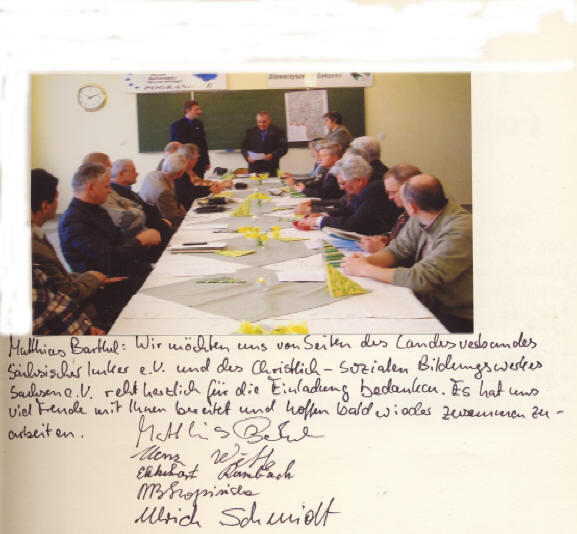 POGRAN
Stowarzyszenie
Matthias Barthel: Wir möchten uns von Seiten des Landesverbandes
Sächsischer Imker e.V. und des Christlich-Sozialen Bildungswerkes
Sachsen e.V. recht herzlich für die Einladung bedanken. Es hat uns
viel Freude mit Ihnen bereitet und hoffen bald wieder zusammen zu-
arbeiten.
Matthias
Ekkehart
Ulrich Schmidt